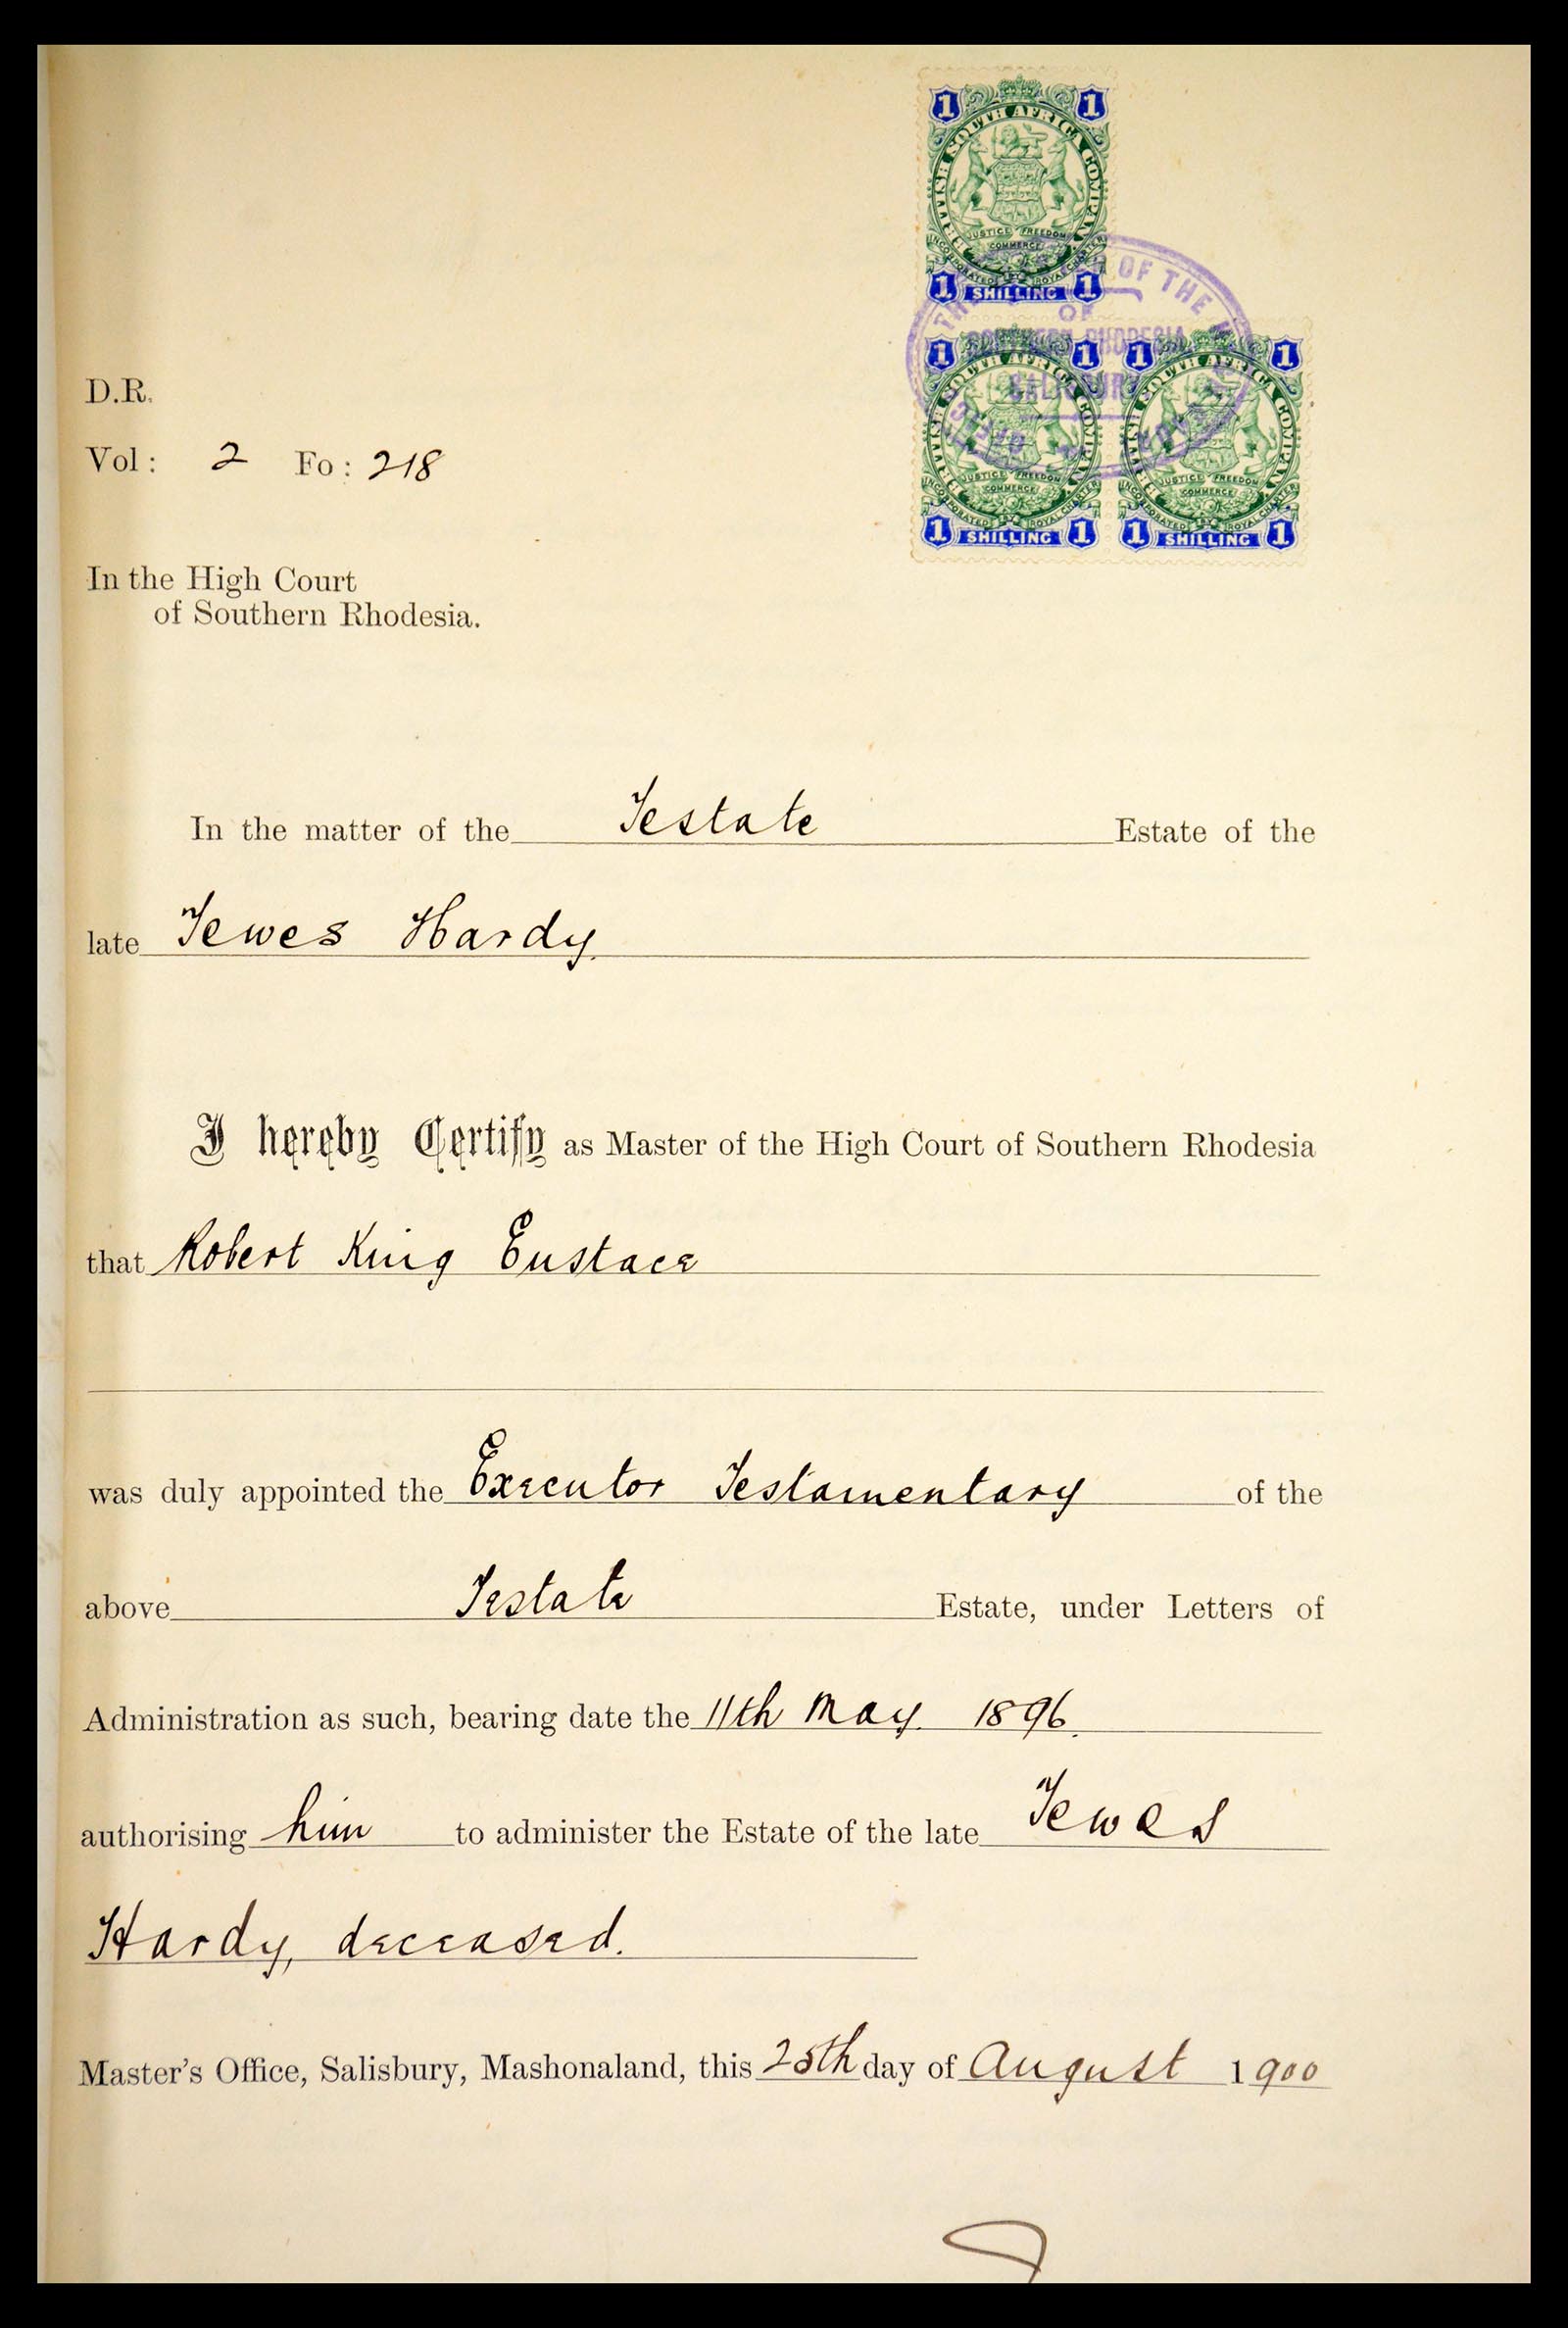 1 1
BRITISH SOUTH AFRICA COMPANY
JUSTICE FREEDOM
COMMERCE
INCORPORATED BY ROYAL CHARTER
1 SHILLING 1
OF THE
THE
OF
SOUTHERN RHODESIA
SALISBURY
1 1 1 1
BRITISH SOUTH AFRICA COMPANY BRITISH SOUTH AFRICA COMPANY
JUSTICE FREEDOM JUSTICE FREEDOM
COMMERCE COMMERCE
INCORPORATED BY ROYAL CHARTER INCORPORATED BY ROYAL CHARTER
1 SHILLING 1 1 SHILLING 1
D.R.
Vol : 2 Fo : 218
In the High Court
of Southern Rhodesia.
In the matter of the Testate Estate of the
late Tewes Hardy.
I hereby Certify as Master of the High Court of Southern Rhodesia
that Robert King Eustace
was duly appointed the Executor Testamentary of the
above Testate Estate, under Letters of
Administration as such, bearing date the 11th May. 1896.
authorising him to administer the Estate of the late Tewes
Hardy, deceased.
Master's Office, Salisbury, Mashonaland, this 25th day of August 1900